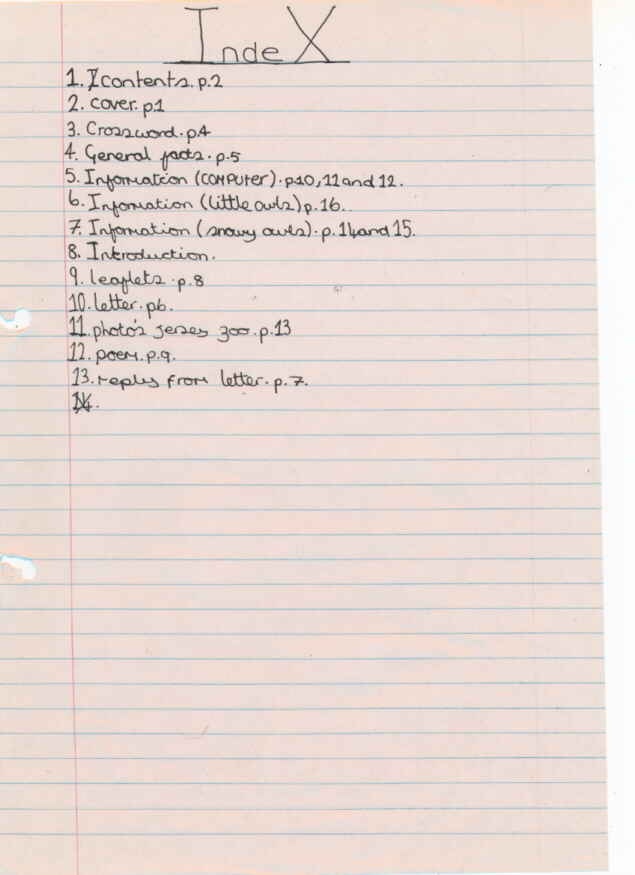 IndeX
1. contents. p.2
2. cover. p1
3. Crossword. p4
4. General facts. p.5
5. Information (COMPUTER). p10, 11 and 12.
6. Information (little owls) p.16.
7. Information (snowy owls). p. 14 and 15.
8. Introduction.
9. leaflets. p.8
10. letter. p6.
11. photo's jersey zoo. p.13
12. poem. p.9.
13. replys from letter. p.7.
14.